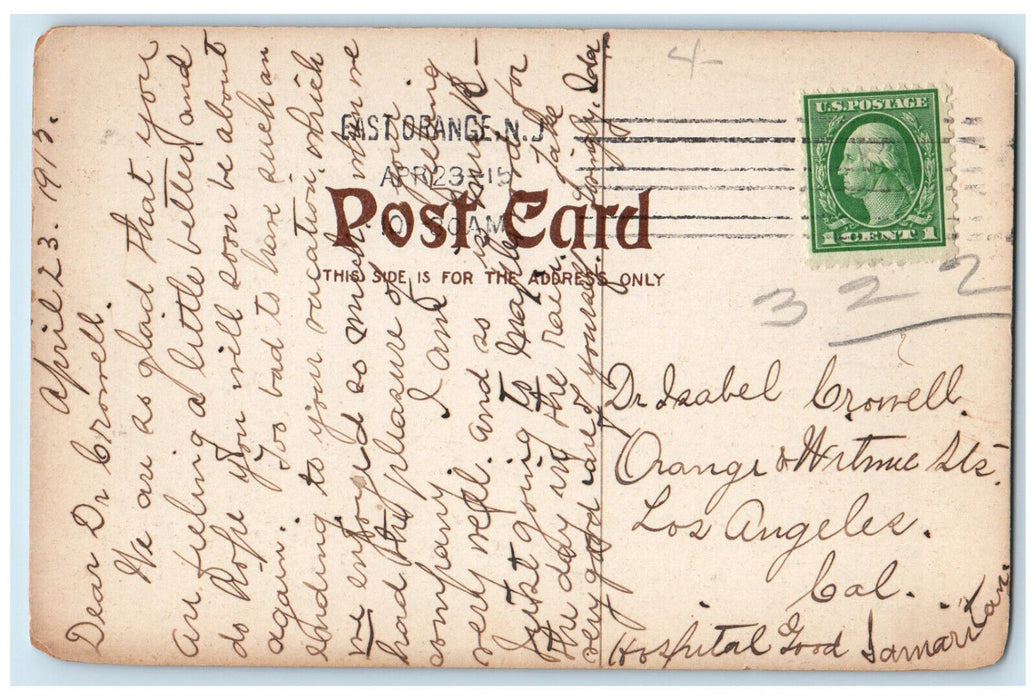 April 23. 1915.
Dear Dr Crowell.
We are so glad that you
are feeling a little better and
do hope you will soon be about
again. Too bad to have such an
ending to your vacation, which
we enjoyed so much when we
had the pleasure of your
company. I am feeling
very well. and as is usual -
just going to for
the day in the rain. Take
very good care of yourself. Lovingly, Ida
4-
EAST ORANGE, N.J.
APR 23 - 15
AM
U.S. POSTAGE
1 CENT 1
Post Card
THIS SIDE IS FOR THE ADDRESS ONLY
3 2 2
Dr Isabel Crowell.
Orange & Witmer Sts.
Los Angeles.
Cal.
Hospital Good Samaritan.